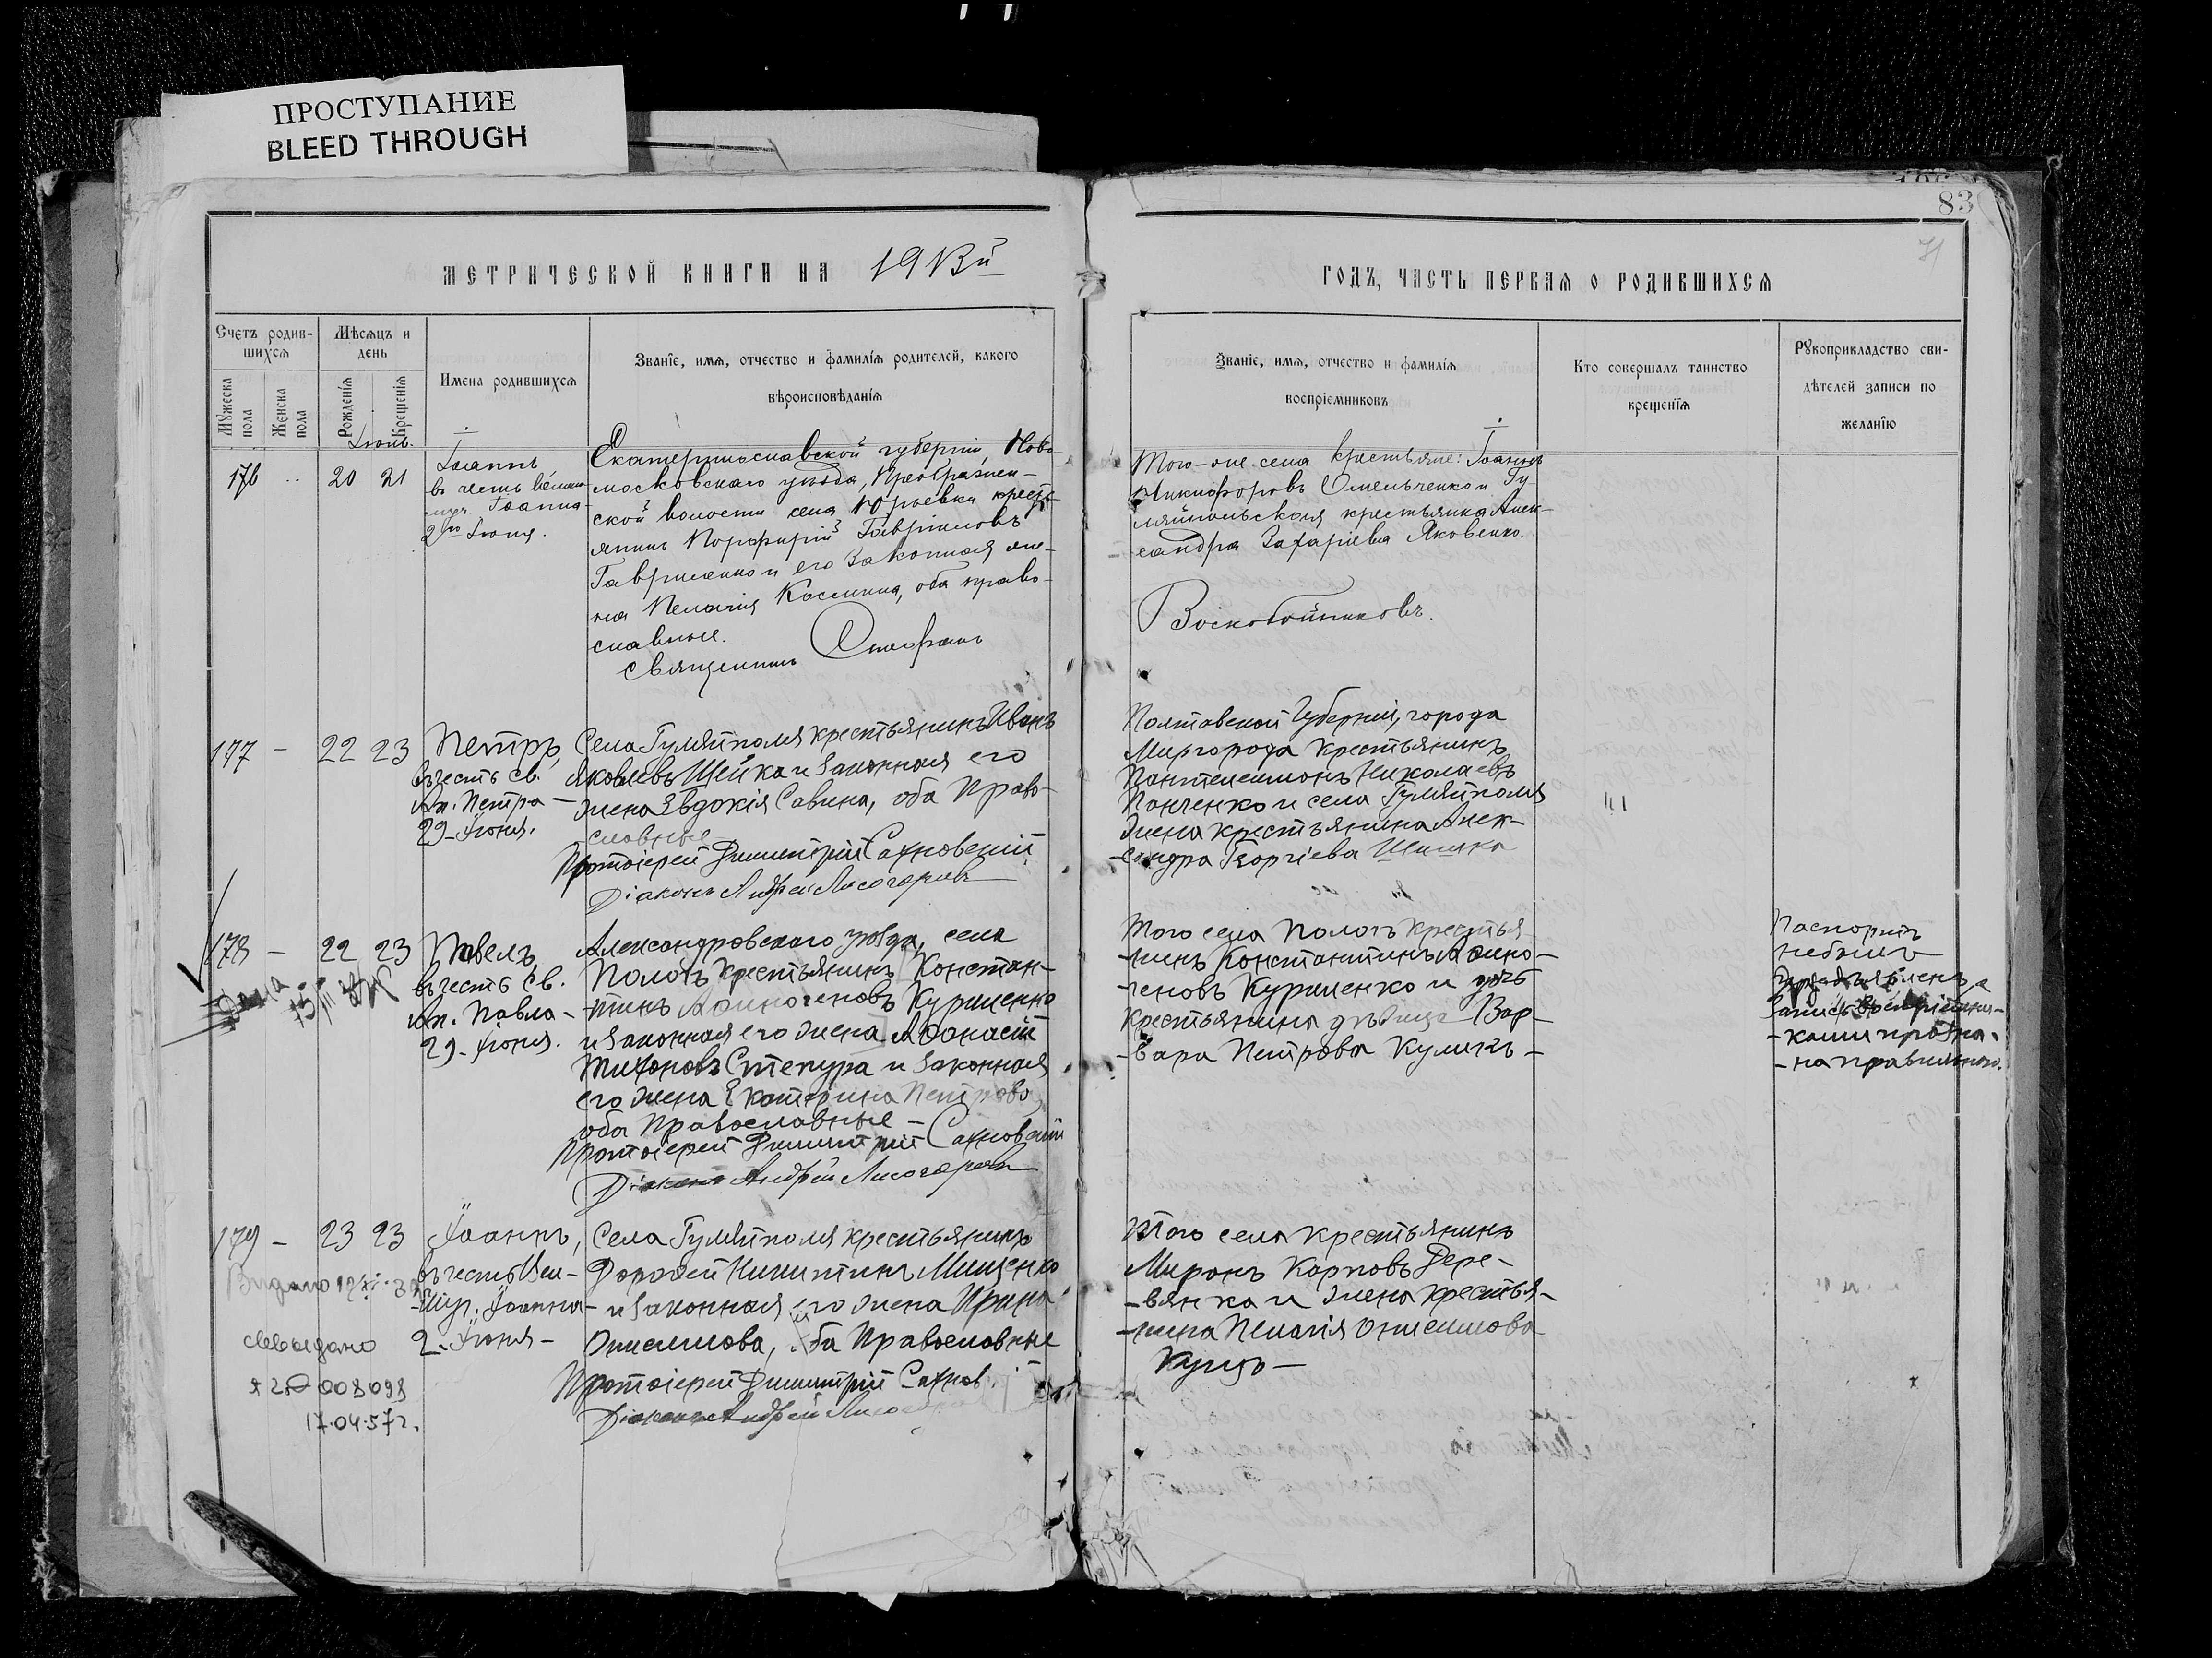 ПРОСТУПАНИЕ
BLEED THROUGH
83
71
МЕТРИЧЕСКОЙ КНИГИ НА 1913й
ГОДЪ, ЧАСТЬ ПЕРВАЯ О РОДИВШИХСЯ
Счетъ родив-
шихся
Мѣсяцъ и
день
Мужеска
пола
Женска
пола
Рожденія
Крещенія
Имена родившихся
Званіе, имя, отчество и фамилія родителей, какого
вѣроисповѣданія
Званіе, имя, отчество и фамилія
воспріемниковъ
Кто совершалъ таинство
крещенія
Рукоприкладство сви-
дѣтелей записи по
желанію
Іюнь.
176 20 21
Іоаннъ
въ честь велико-
муч. Іоанна
2го Іюня.
Екатеринославской губерніи, Ново-
московскаго уѣзда, Преображен-
ской волости села Юрьевки кресть-
янинъ Порфирій Гавріиловъ
Гавриленко и его законная же-
на Пелагія Космина, оба право-
славные.
Священникъ Стефанъ
Того-же села крестьяне: Іоаннъ
Никифоровъ Омельченко и Гу-
ляйпольская крестьянка Алек-
сандра Захаріева Яковенко.
Воскобойниковъ.
177 – 22 23
Петръ,
въ честь св.
Ап. Петра –
29 Іюня.
Села Гуляйполя крестьянинъ Иванъ
Яковлевъ Шейка и законная его
жена Евдокія Савина, оба Право-
славные
Протоіерей Димитрій Сахновскій
Діаконъ Андрей Лисогоровъ
Полтавской Губерніи, города
Миргорода крестьянинъ
Пантелеимонъ Николаевъ
Панченко и села Гуляйполя
жена крестьянина Алек-
-сандра Георгіева Шишка
178 – 22 23
Павелъ
въ честь св.
Ап. Павла –
29 Іюня.
Александровскаго уѣзда, села
Пологъ крестьянинъ Констан-
-тинъ Аѳиногеновъ Куриленко
и законная его жена Аѳанасій
Тихоновъ Степура и законная
его жена Екатерина Петрова,
оба Православные –
Протоіерей Димитрій Сахновскій
Діаконъ Андрей Лисогоровъ
Того села Пологъ крестья-
-нинъ Константинъ Аѳино-
-геновъ Куриленко и дочь
крестьянина дѣвица Вар-
-вара Петрова Куликъ –
Паспортъ
небылъ
предъявленъ, а
запись воспріемни-
-ками
179 – 23 23
Іоаннъ,
въ честь Вел-
-муч. Іоанна –
2 Іюня –
Села Гуляйполя крестьянинъ
Дороѳей Никитинъ Мищенко
и законная его жена Ирина
Онисимова, оба Православные
Протоіерей Димитрій Сахнов.
Діаконъ Андрей
Того села крестьянинъ
Миронъ Карповъ Дере-
-вянка и жена крестья-
-нина Пелагія Онисимова
Куцъ –
008098
17.04.57г.